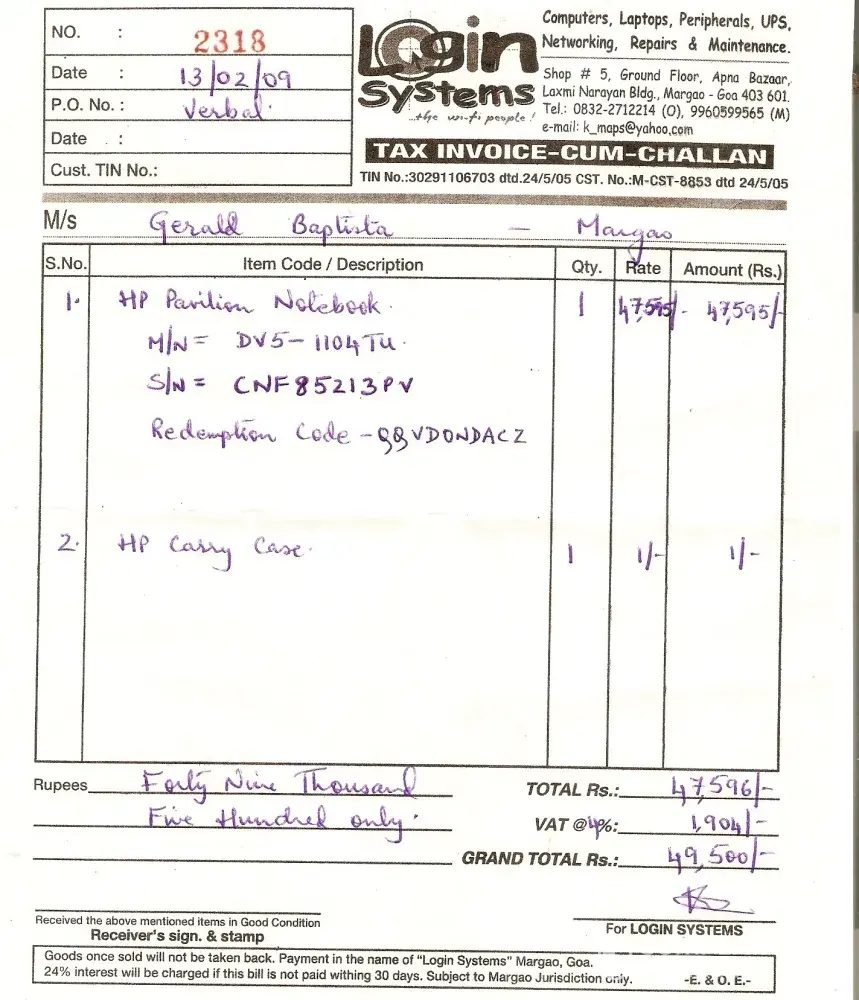 NO. : 2318
Date : 13/02/09
P.O. No. : Verbal.
Date :
Cust. TIN No.:
Login
Systems
...the wi-fi people!
Computers, Laptops, Peripherals, UPS,
Networking, Repairs & Maintenance.
Shop # 5, Ground Floor, Apna Bazaar,
Laxmi Narayan Bldg., Margao - Goa 403 601.
Tel.: 0832-2712214 (O), 9960599565 (M)
e-mail: k_maps@yahoo.com
TAX INVOICE-CUM-CHALLAN
TIN No.:30291106703 dtd.24/5/05 CST. No.:M-CST-8853 dtd 24/5/05
M/s Gerald Baptista — Margao
S.No. Item Code / Description Qty. Rate Amount (Rs.)
1. HP Pavilion Notebook. 1 47,595/- 47,595/-
M/N = DV5-1104TU.
S/N = CNF85213PV
Redemption Code - QQVDONDACZ
2. HP Carry Case. 1 1/- 1/-
Rupees Forty Nine Thousand
Five Hundred only.
TOTAL Rs.: 47,596/-
VAT @4%: 1,904/-
GRAND TOTAL Rs.: 49,500/-
Received the above mentioned items in Good Condition
Receiver's sign. & stamp
For LOGIN SYSTEMS
Goods once sold will not be taken back. Payment in the name of "Login Systems" Margao, Goa.
24% interest will be charged if this bill is not paid withing 30 days. Subject to Margao Jurisdiction only.
-E. & O. E.-